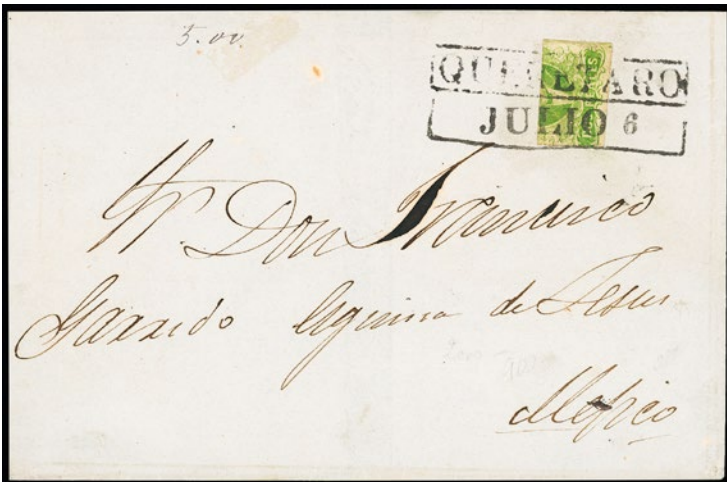 5.00
QUERETARO
JULIO 6
Sr. Don Francisco
Garrido Esquina de Jesus
Mexico